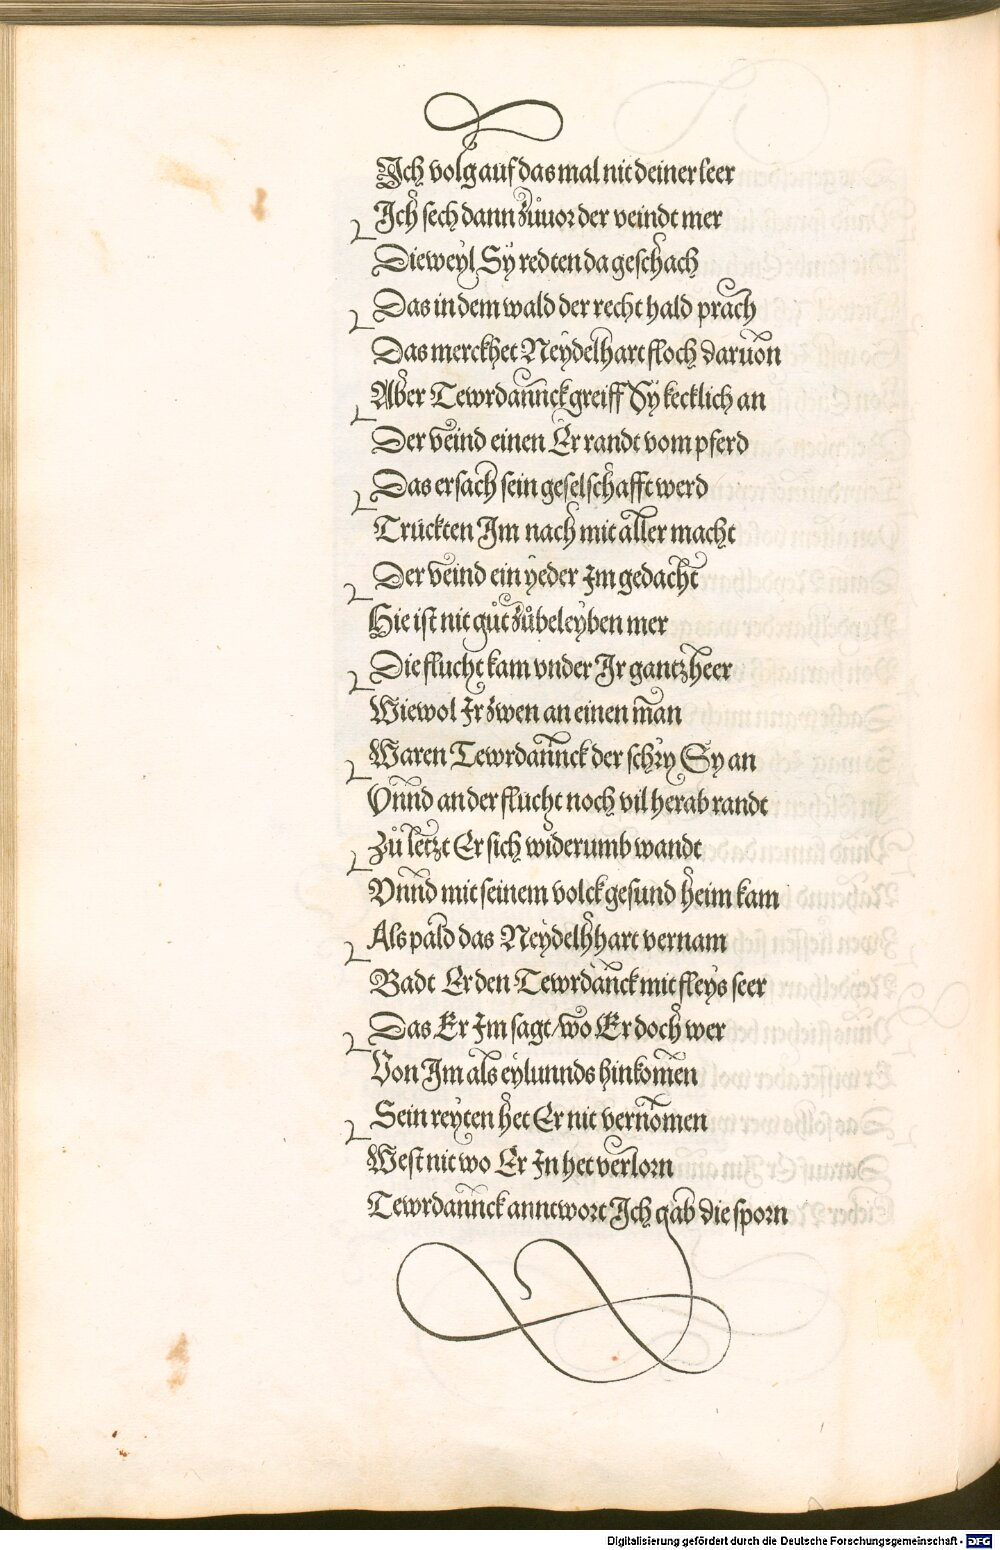 Ich volg auf das mal nit deiner leer
Ich sech dann zůuor der veindt mer
Dieweyl Sy redten da geschach
Das in dem wald der recht hald prach
Das merckhet Neydelhart floch daruon
Aber Tewrdannck greiff Sy kecklich an
Der veind einen Er randt vom pferd
Das ersach sein geselschafft werd
Truckten Im nach mit aller macht
Der veind ein yeder Im gedacht
Hie ist nit gůt zůbeleyben mer
Die flucht kam vnder Ir gantz heer
Wiewol Ir zwen an einen man
Waren Tewrdannck der schry Sy an
Vnnd an der flucht noch vil herab randt
Zů letzt Er sich widerumb wandt
Vnnd mit seinem volck gesund heim kam
Als pald das Neydelhhart vernam
Badt Er den Tewrdanck mit fleys seer
Das Er Im sagt / wo Er doch wer
Von Im als eylunnds hinkomen
Sein reyten het Er nit vernomen
West nit wo Er In het verlorn
Tewrdannck anntwort Ich gab die sporn
Digitalisierung gefördert durch die Deutsche Forschungsgemeinschaft - DFG